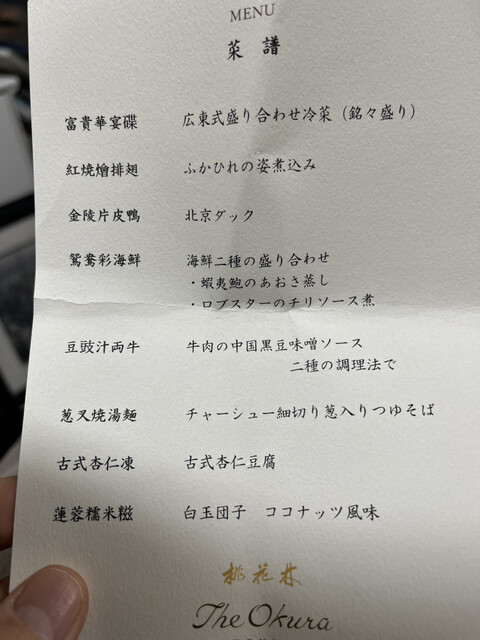 MENU
菜譜
富貴華宴碟 広東式盛り合わせ冷菜（銘々盛り）
紅焼燴排翅 ふかひれの姿煮込み
金陵片皮鴨 北京ダック
鴛鴦彩海鮮 海鮮二種の盛り合わせ
・蝦夷鮑のあおさ蒸し
・ロブスターのチリソース煮
豆豉汁両牛 牛肉の中国黒豆味噌ソース
二種の調理法で
葱叉焼湯麺 チャーシュー細切り葱入りつゆそば
古式杏仁凍 古式杏仁豆腐
蓮蓉糯米糍 白玉団子 ココナッツ風味
桃花林
The Okura